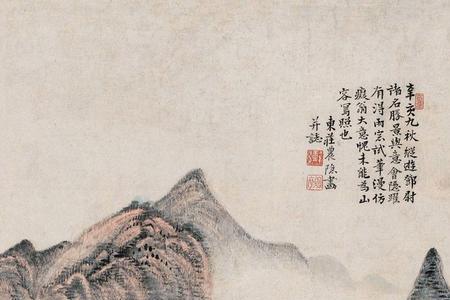 辛亥九秋縱遊鄧尉
諸石勝景與意會隱躍
有得雨窓試筆漫仿
癡翁大意愧未能為山
容寫照也
東莊農隐畫
并誌